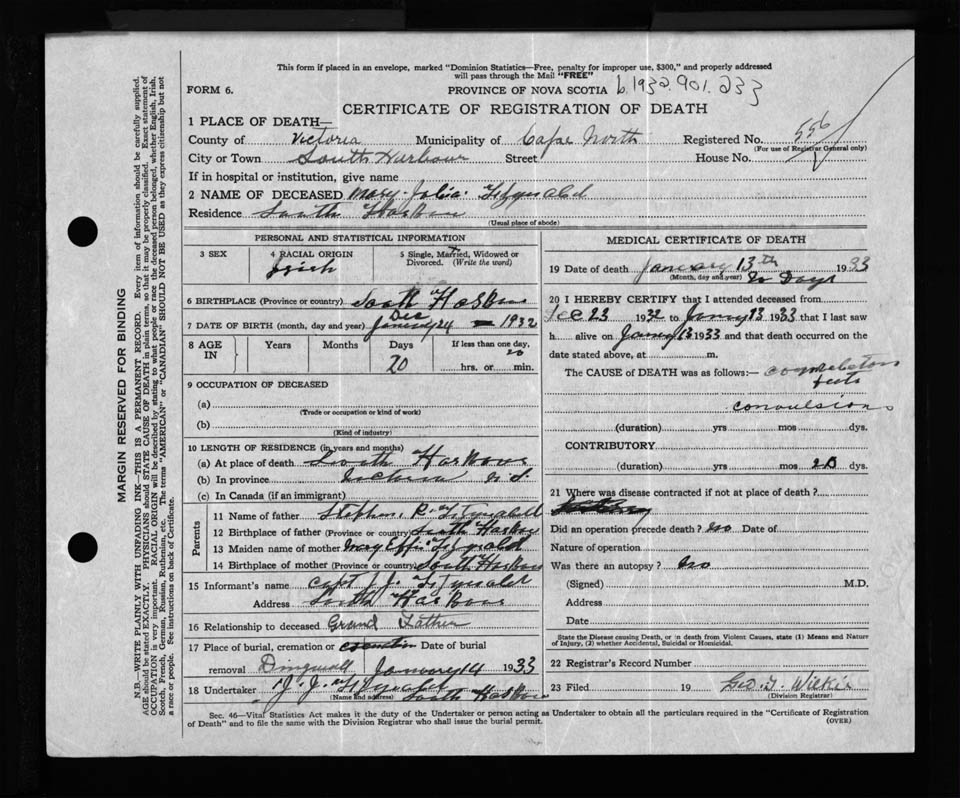 This form if placed in an envelope, marked "Dominion Statistics—Free, penalty for improper use, $300," and properly addressed
will pass through the Mail "FREE"
FORM 6.
PROVINCE OF NOVA SCOTIA b. 1932. 901. 233
CERTIFICATE OF REGISTRATION OF DEATH
1 PLACE OF DEATH—
County of Victoria Municipality of Cape North Registered No. 556
(For use of Registrar General only)
City or Town South Harbour Street House No.
If in hospital or institution, give name
2 NAME OF DECEASED Mary Julia
Residence South Harbour
(Usual place of abode)
PERSONAL AND STATISTICAL INFORMATION
3 SEX
4 RACIAL ORIGIN
Irish
5 Single, Married, Widowed or
Divorced. (Write the word)
6 BIRTHPLACE (Province or country) South
7 DATE OF BIRTH (month, day and year) Dec 24 1932
8 AGE
IN
Years Months Days If less than one day,
20
hrs. or min.
9 OCCUPATION OF DECEASED
(a)
(Trade or occupation or kind of work)
(b)
(Kind of industry)
10 LENGTH OF RESIDENCE (in years and months)
(a) At place of death South
(b) In province
(c) In Canada (if an immigrant)
Parents
11 Name of father Stephen R.
12 Birthplace of father (Province or country) South
13 Maiden name of mother Mary Effie
14 Birthplace of mother (Province or country) South
15 Informant's name Capt J. J.
Address South
16 Relationship to deceased Grand Father
17 Place of burial, cremation or Date of burial
removal Dingwall January 14 1933
18 Undertaker J. J.
(Name and address) South
MEDICAL CERTIFICATE OF DEATH
19 Date of death January 13th 1933
(Month, day and year) 20 Days
20 I HEREBY CERTIFY that I attended deceased from
Dec 23 1932 to 13 1933 that I last saw
h alive on 13 1933 and that death occurred on the
date stated above, at m.
The CAUSE of DEATH was as follows:—
convulsions
(duration) yrs mos dys.
CONTRIBUTORY
(duration) yrs mos 20 dys.
21 Where was disease contracted if not at place of death?
Did an operation precede death? No Date of
Nature of operation
Was there an autopsy? No
(Signed) M.D.
Address
Date
State the Disease causing Death, or in death from Violent Causes, state (1) Means and Nature
of Injury, (2) whether Accidental, Suicidal or Homicidal.
22 Registrar's Record Number
23 Filed 19 Geo. Wilkie
(Division Registrar)
Sec. 46—Vital Statistics Act makes it the duty of the Undertaker or person acting as Undertaker to obtain all the particulars required in the "Certificate of Registration
of Death" and to file the same with the Division Registrar who shall issue the burial permit.
(OVER)
MARGIN RESERVED FOR BINDING
N.B.—WRITE PLAINLY WITH UNFADING INK—THIS IS A PERMANENT RECORD. Every item of information should be carefully supplied.
AGE should be stated EXACTLY. PHYSICIANS should STATE CAUSE OF DEATH in plain terms, so that it may be properly classified. Exact statement of
OCCUPATION is very important. RACIAL ORIGIN will be described by stating to what people or race the deceased person belonged, whether English, Irish,
Scotch, French, German, Russian, Ruthenian, etc. The terms "AMERICAN" or "CANADIAN" SHOULD NOT BE USED as they express citizenship but not
a race or people. See instructions on back of Certificate.